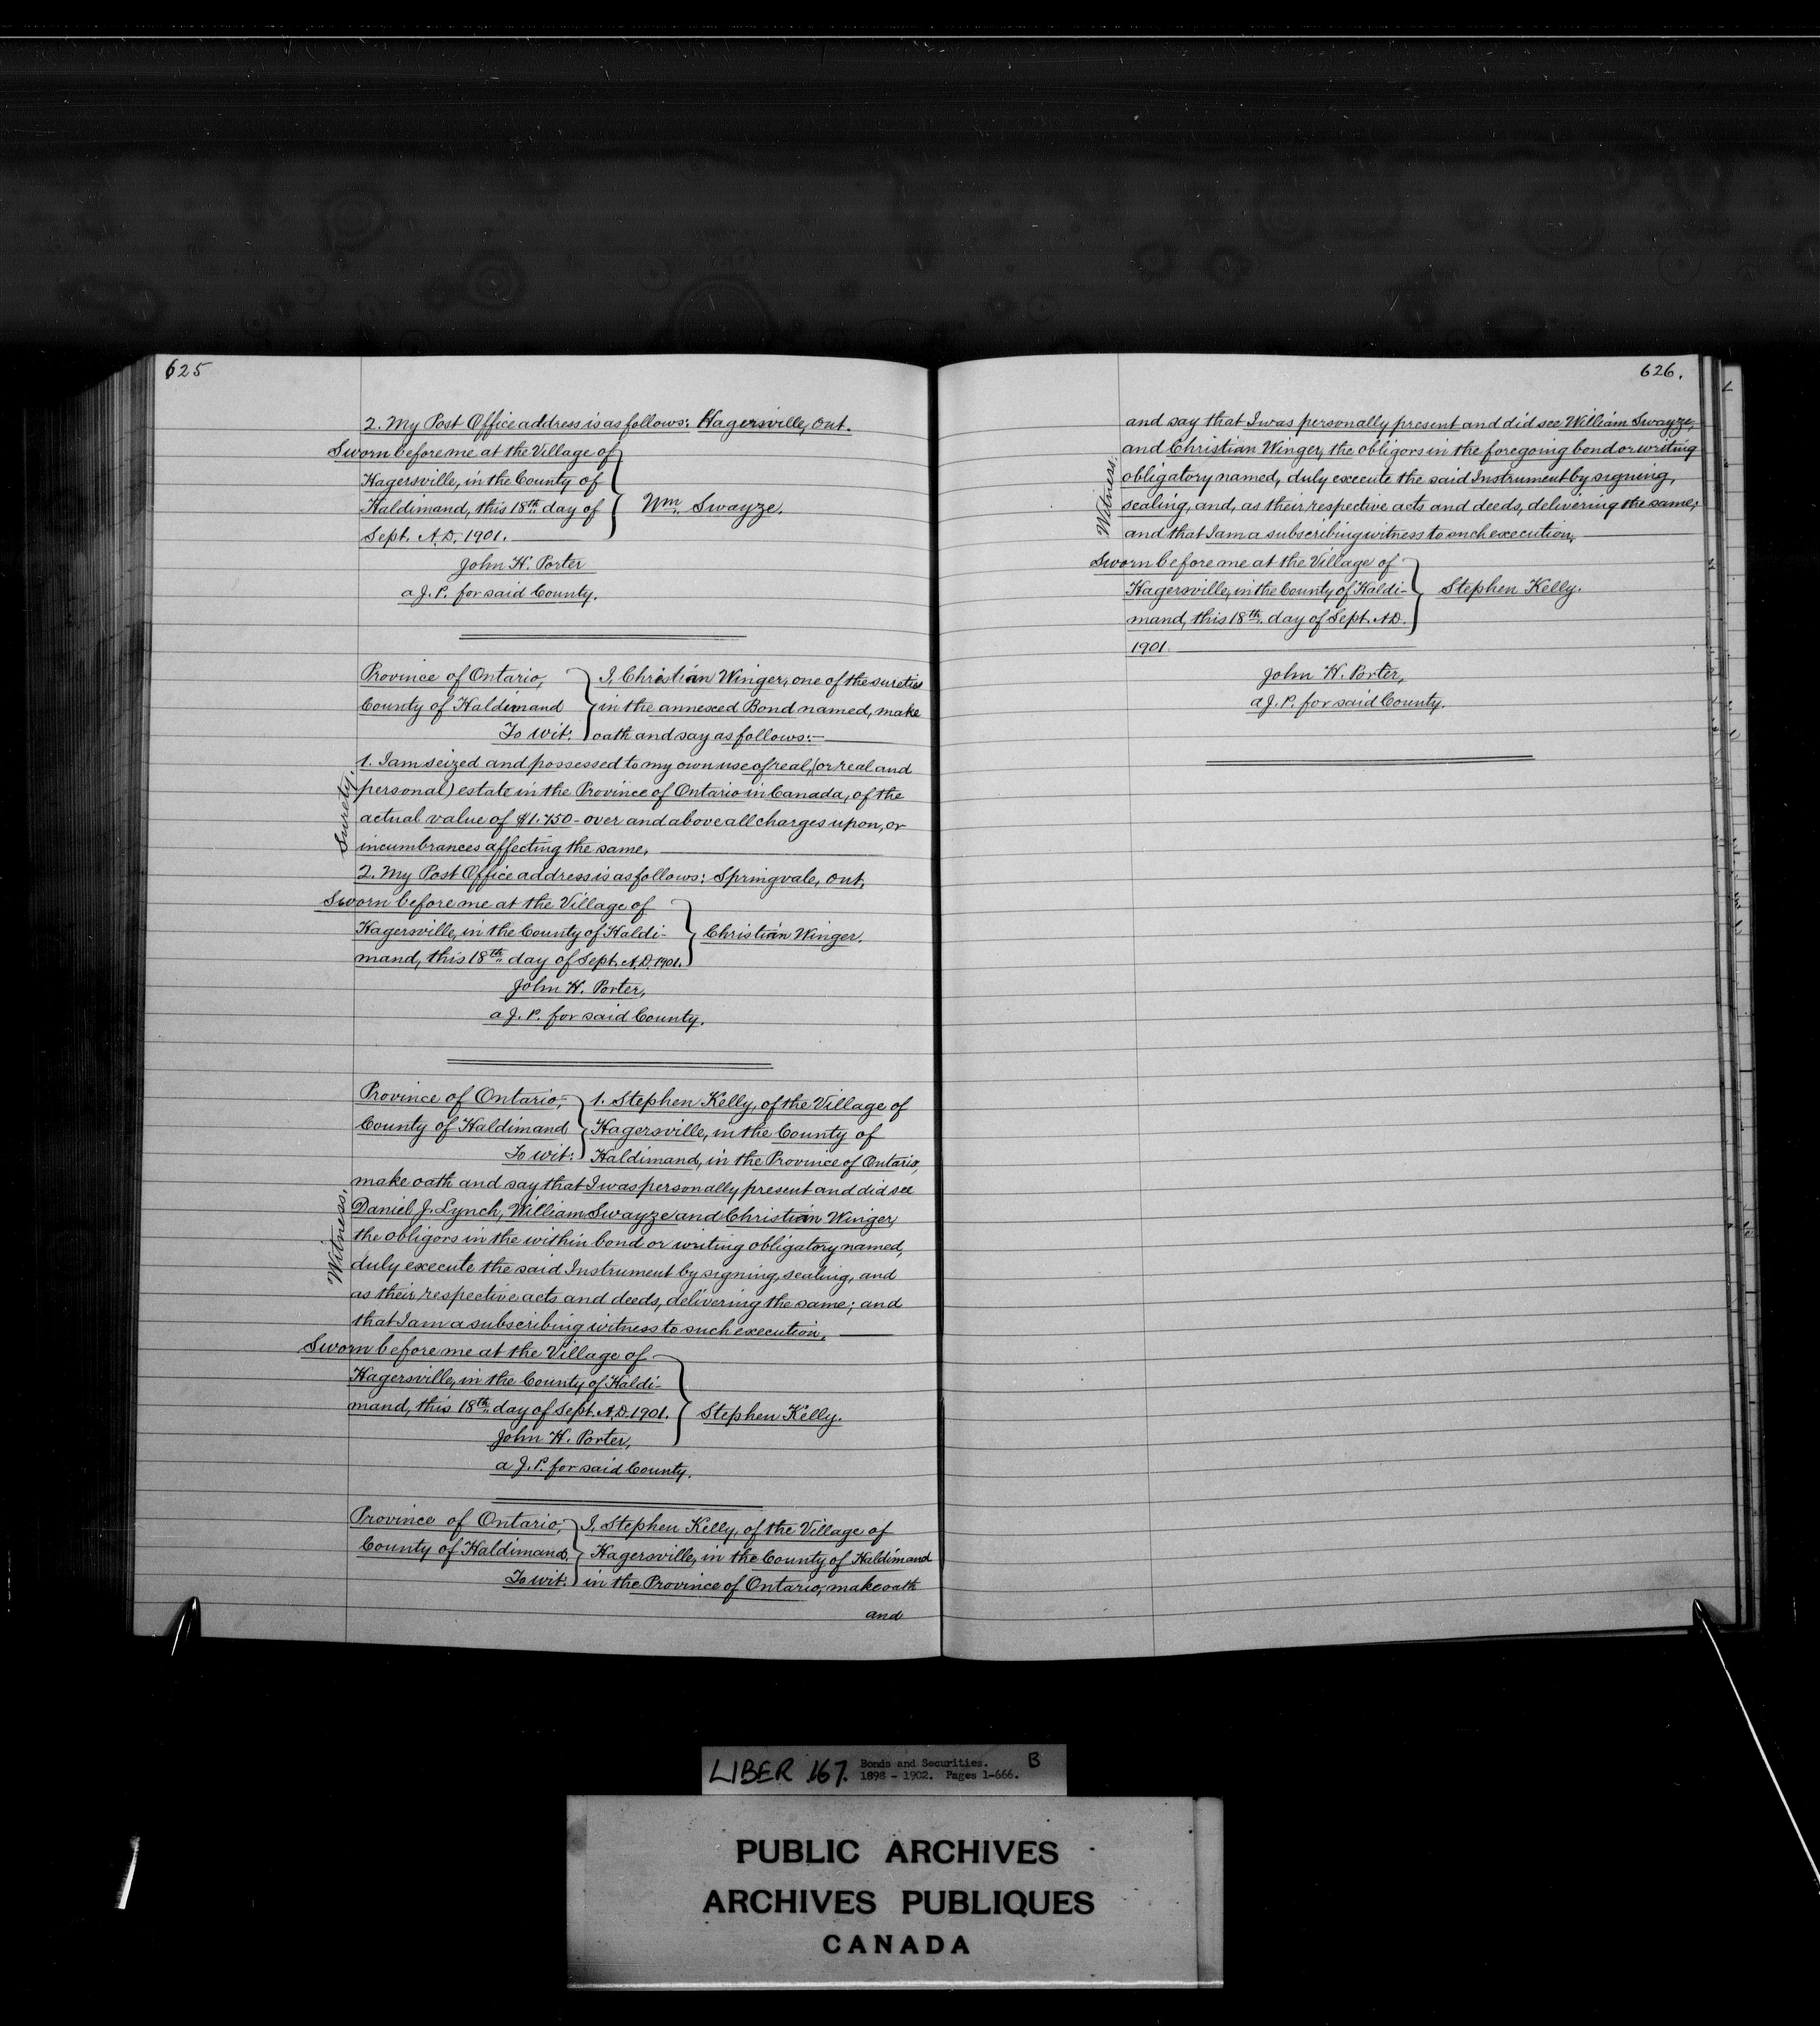 625
2. My Post Office address is as follows: Hagersville, Ont.
Sworn before me at the Village of
Hagersville, in the County of
Haldimand, this 18th day of
Sept. A.D. 1901.
Wm. Swayze.
John H. Porter
a J. P. for said County.
Province of Ontario,
County of Haldimand
To wit:
I, Christian Winger, one of the sureties
in the annexed Bond named, make
oath and say as follows:-
Surety.
1. I am seized and possessed to my own use of real, (or real and
personal) estate in the Province of Ontario in Canada, of the
actual value of $1.750- over and above all charges upon, or
incumbrances affecting the same.
2. My Post Office address is as follows: Springvale, Ont.
Sworn before me at the Village of
Hagersville, in the County of Haldi-
mand, this 18th day of Sept. A.D. 1901.
Christian Winger.
John H. Porter,
a J. P. for said County.
Province of Ontario,
County of Haldimand
To wit:
1. Stephen Kelly, of the Village of
Hagersville, in the County of
Haldimand, in the Province of Ontario,
Witness.
make oath and say that I was personally present and did see
Daniel J. Lynch, William Swayze and Christian Winger,
the obligors in the within bond or writing obligatory named,
duly execute the said Instrument by signing, sealing, and
as their respective acts and deeds, delivering the same; and
that I am a subscribing witness to such execution.
Sworn before me at the Village of
Hagersville, in the County of Haldi-
mand, this 18th day of Sept. A.D. 1901.
Stephen Kelly.
John H. Porter,
a J. P. for said County.
Province of Ontario,
County of Haldimand.
To wit:
I, Stephen Kelly, of the Village of
Hagersville, in the County of Haldimand
in the Province of Ontario, make oath
and
626.
and say that I was personally present and did see William Swayze,
and Christian Winger, the obligors in the foregoing bond or writing
Witness.
obligatory named, duly execute the said Instrument by signing,
sealing, and, as their respective acts and deeds, delivering the same;
and that I am a subscribing witness to such execution.
Sworn before me at the Village of
Hagersville, in the County of Haldi-
mand, this 18th day of Sept. A.D.
1901.
Stephen Kelly.
John H. Porter,
a J. P. for said County.
LIBER 167. Bonds and Securities. B
1898 - 1902. Pages 1-666.
PUBLIC ARCHIVES
ARCHIVES PUBLIQUES
CANADA